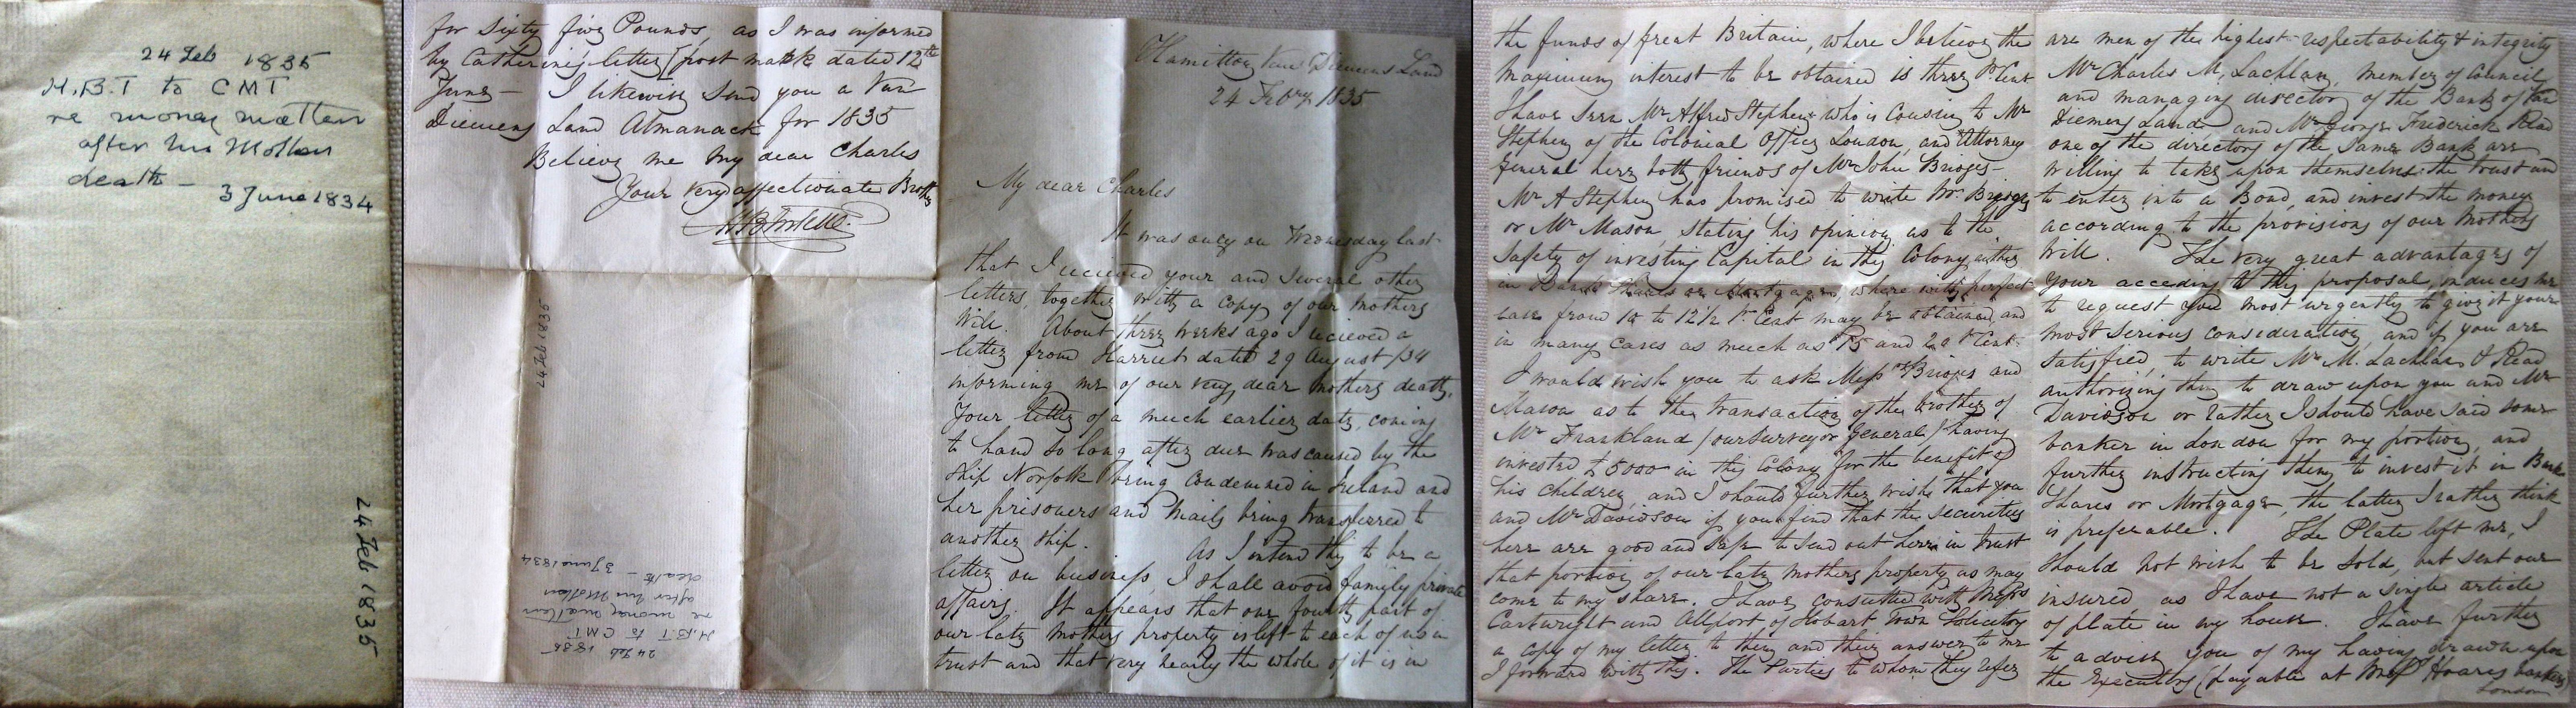 24 Feb 1835
H.B.T to CMT
re money matters
after his Mothers
death -
3 June 1834
24 Feb 1835
for Sixty five Pounds, as I was informed
by Catherine's letter (post mark dated 12th
June - I likewise send you a Van
Diemens Land Almanack for 1835
Believe me My dear Charles
Your very affectionate Brother
24 Feb 1835
24 Feb 1835
H.B.T to CMT
re money matters
after his Mothers
death - 3 June 1834
Hamilton Van Diemens Land
24 Febry 1835
My dear Charles
It was only on Wednesday last
that I recieved your and Several other
letters, together with a Copy of our Mothers
Will. About three weeks ago I recieved a
letter from Harriet dated 29 August /34
informing me of our very dear Mothers death,
Your letter of a much earlier date, coming
to hand so long after due was caused by the
Ship Norfolk being Condemned in Ireland and
her prisoners and Mails being transferred to
another Ship. As I intend this to be a
letter on business, I shall avoid family private
affairs. It appears that one fourth part of
our late Mothers property is left to each of us in
trust and that very nearly the whole of it is in
the funds of Great Britain, where I believe the
Maximum interest to be obtained is three Pr Cent
I have seen Mr Alfred Stephen who is Cousin to Mr
Stephen of the Colonial Office London, and Attorney
General here both friends of Mr John Briggs -
Mr A Stephen has promised to write Mr Briggs
or Mr Mason, Stating his opinion as to the
Safety of investing Capital in this Colony, either
in Bank Shares or Mortgages, where with perfect
ease from 10 to 12 1/2 Pr Cent may be obtained, and
in many cases as much as 15 and 20 Pr Cent.
I would wish you to ask Messrs Briggs and
Mason as to the transaction of the brother of
Mr Frankland (our Surveyor General) having
invested £5000 in this Colony for the benefit of
his Children, and I should further wish that you
and Mr Davidson if you find that the Securities
here are good and Safe to Send out here in trust
that portion of our late Mothers property as may
come to my share. I have consulted with Messrs
Cartwright and Allport of Hobart Town Solicitors
a copy of my letter to them and their answer to me
I forward with this. The Parties to whom they refer
are men of the highest respectability & integrity
Mr Charles McLachlan, Member of Council
and managing director of the Bank of Van
Diemens Land and Mr George Frederick Read
one of the directors of the Same Bank are
willing to take upon themselves the trust and
to enter into a Bond, and invest the money
according to the provisions of our Mothers
Will. The very great advantages of
your acceding to this proposal, induces me
to request you most urgently to give it your
most Serious consideration, and if you are
Satisfied, to write Mr McLachlan & Read
authorising them to draw upon you and Mr
Davidson or rather I should have said some
banker in London for my portion, and
further instructing them to invest it in Bank
Shares or Mortgage, the latter I rather think
is preferable. The Plate left me, I
should not wish to be sold, but sent out
insured, as I have not a single article
of plate in my house. I have further
to advise you of my having drawn upon
the Executors (payable at Messrs Hoares bankers
London